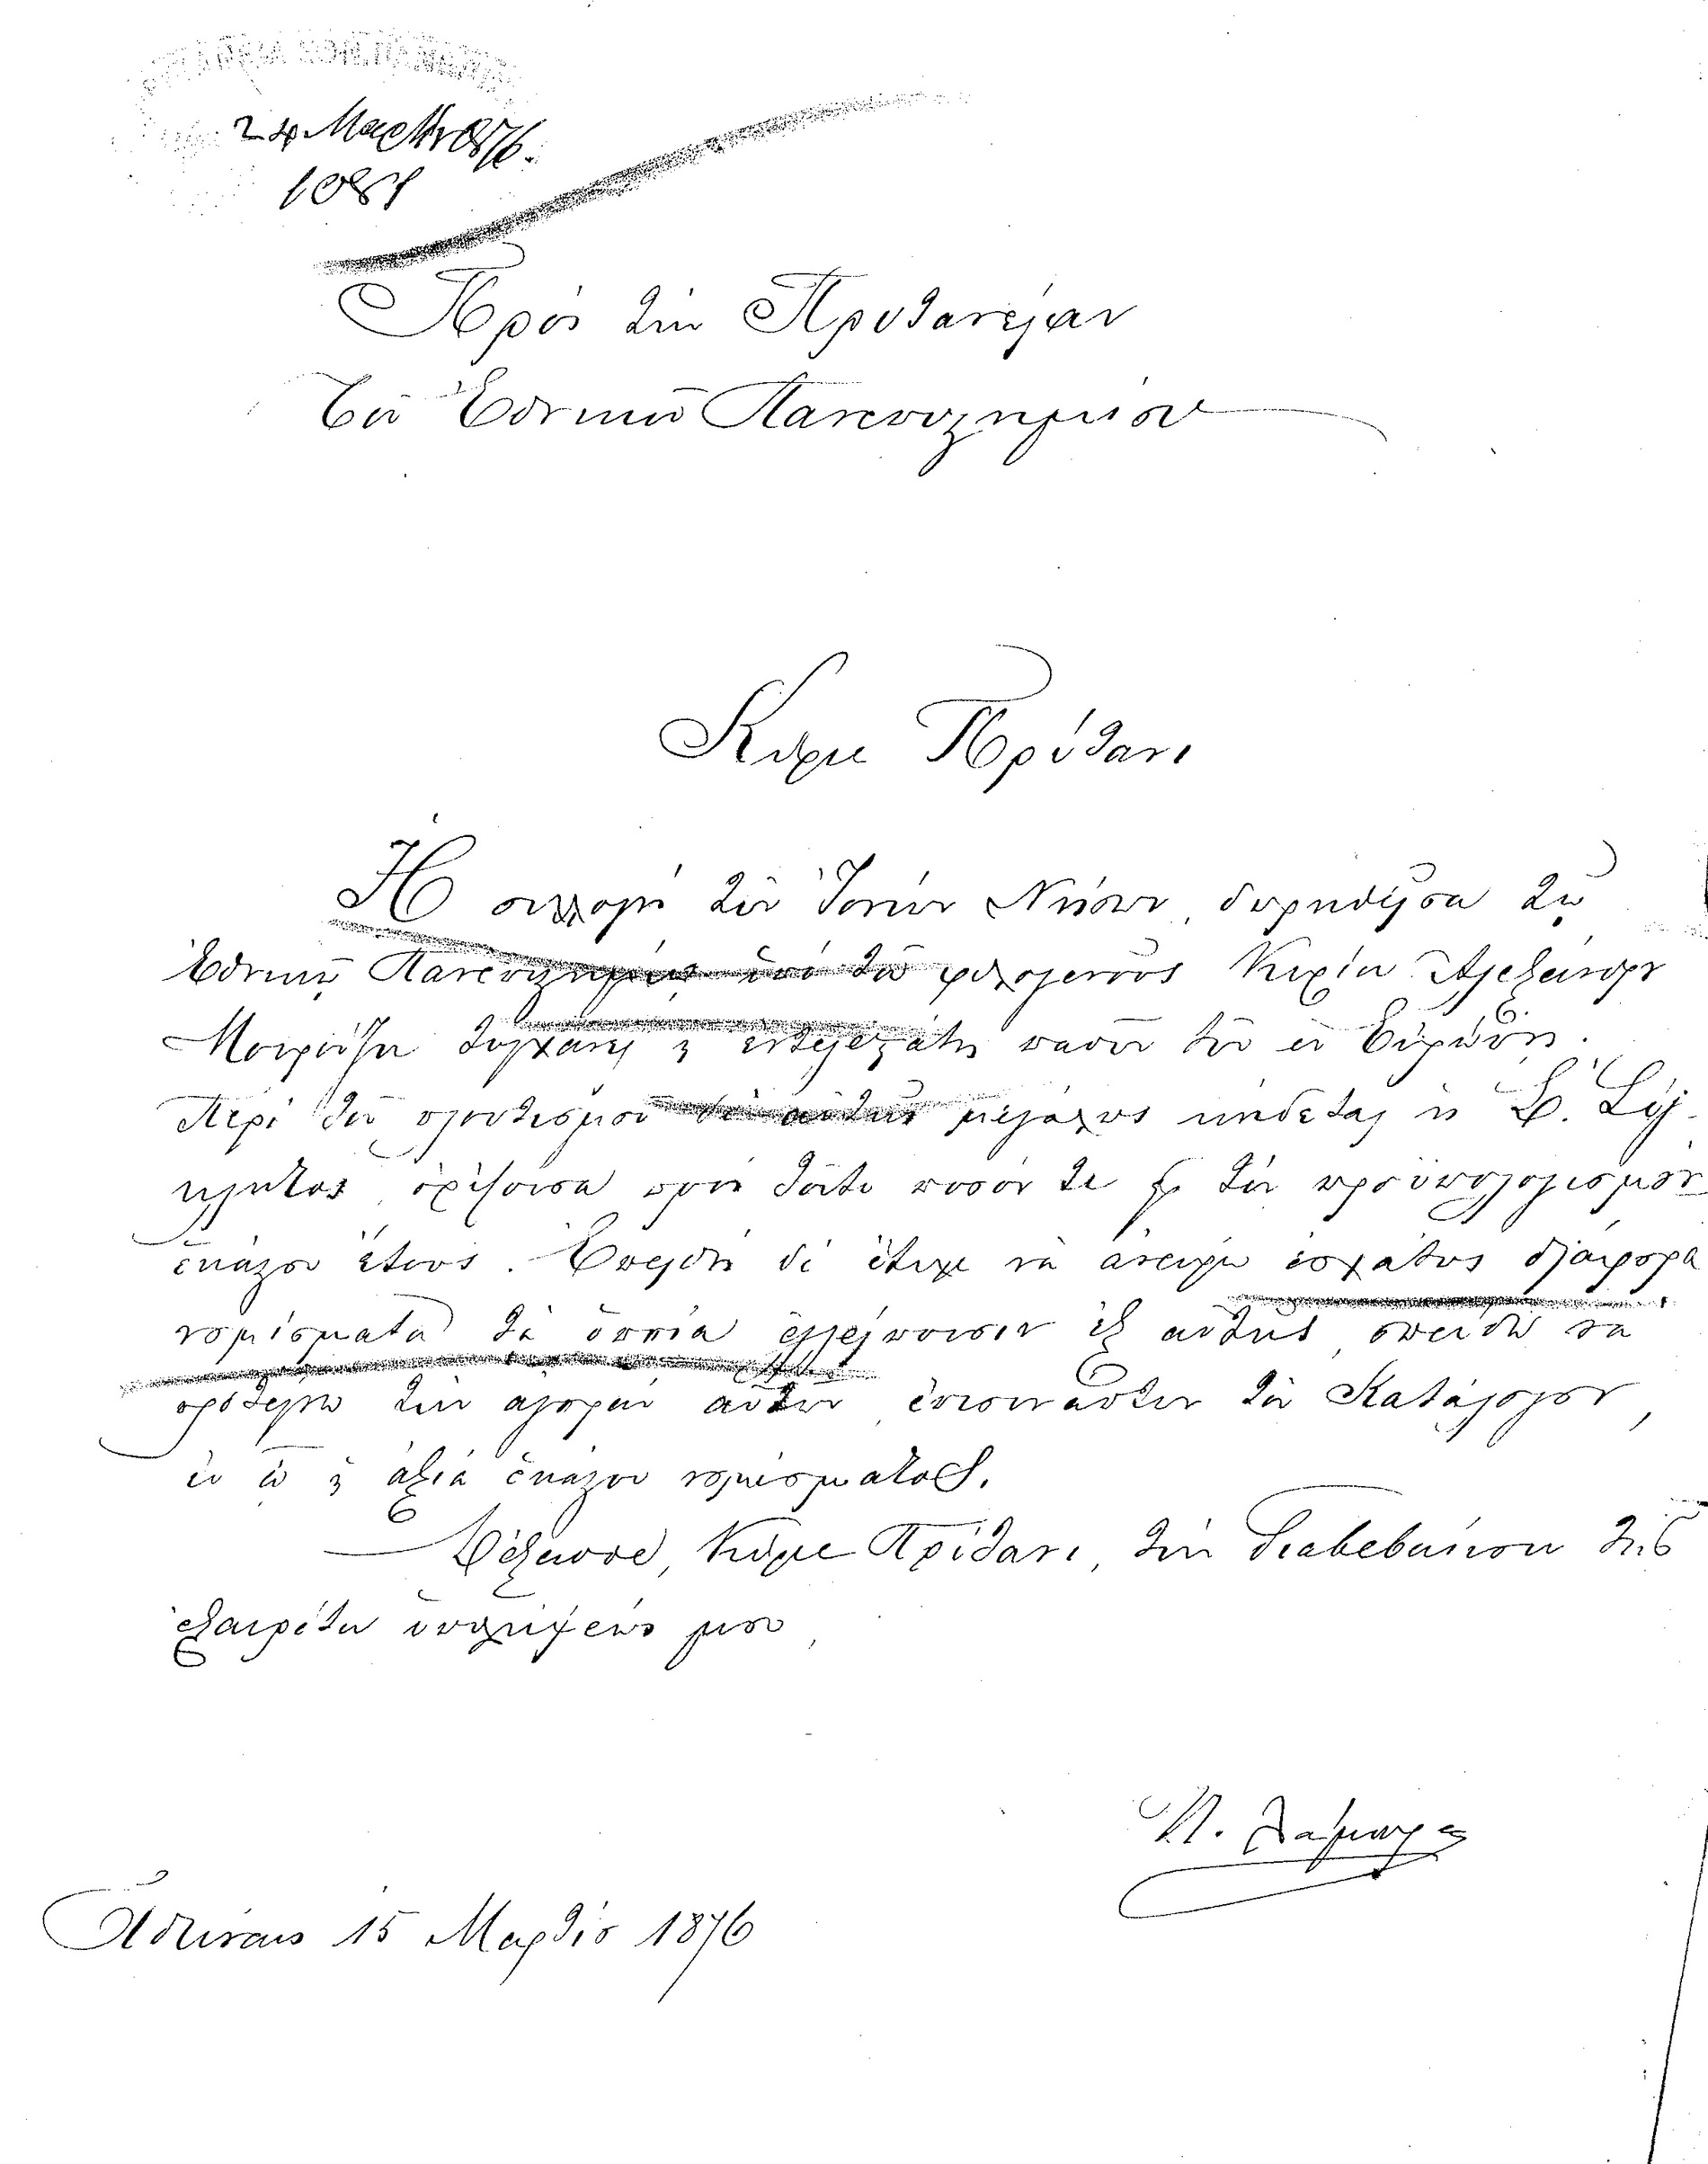 24 Μαρτίου 1876.
1081
Πρὸς τὴν Πρυτανείαν
τοῦ Ἐθνικοῦ Πανεπιστημίου
Κύριε Πρύτανι
Ἡ συλλογὴ τῶν Ἰονίων Νήσων, δωρηθεῖσα τῷ
Ἐθνικῷ Πανεπιστημίῳ ὑπὸ τοῦ φιλογενοῦς Κυρίου Ἀλεξάνδρου
Μουρούζη τυγχάνει ἡ ἐντελεστάτη πασῶν τῶν ἐν Εὐρώπῃ.
Περὶ τοῦ πλουτισμοῦ δὲ αὐτῆς μεγάλως κήδεται ἡ Σ. Σύγ-
κλητος, ὁρίζουσα πρὸς τοῦτο ποσόν τι εἰς τὸν προϋπολογισμὸν
ἑκάστου ἔτους. Ἐπειδὴ δὲ ἔτυχε νὰ ἀνεύρω ἐσχάτως διάφορα
νομίσματα τὰ ὁποῖα ἐλλείπουσιν ἐξ αὐτῆς, σπεύδω να
προτείνω τὴν ἀγορὰν αὐτῶν, ἐπισυνάπτων τὸν Κατάλογον,
ἐν ᾧ ἡ ἀξία ἑκάστου νομίσματος.
Δέξασθε, Κύριε Πρύτανι, τὴν διαβεβαίωσιν τῆς
ἐξαιρέτου ὑπολήψεώς μου,
Π. Λάμπρος
Ἀθήναις 15 Μαρτίου 1876